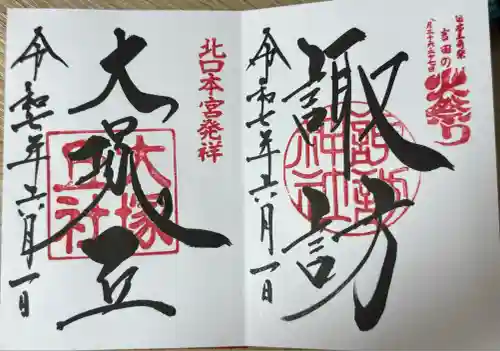 日本三奇祭
吉田の火祭り
八月二十六・二十七日
諏訪
諏訪神社
令和七年六月一日
北口本宮発祥
大塚丘
大塚丘社
令和七年六月一日